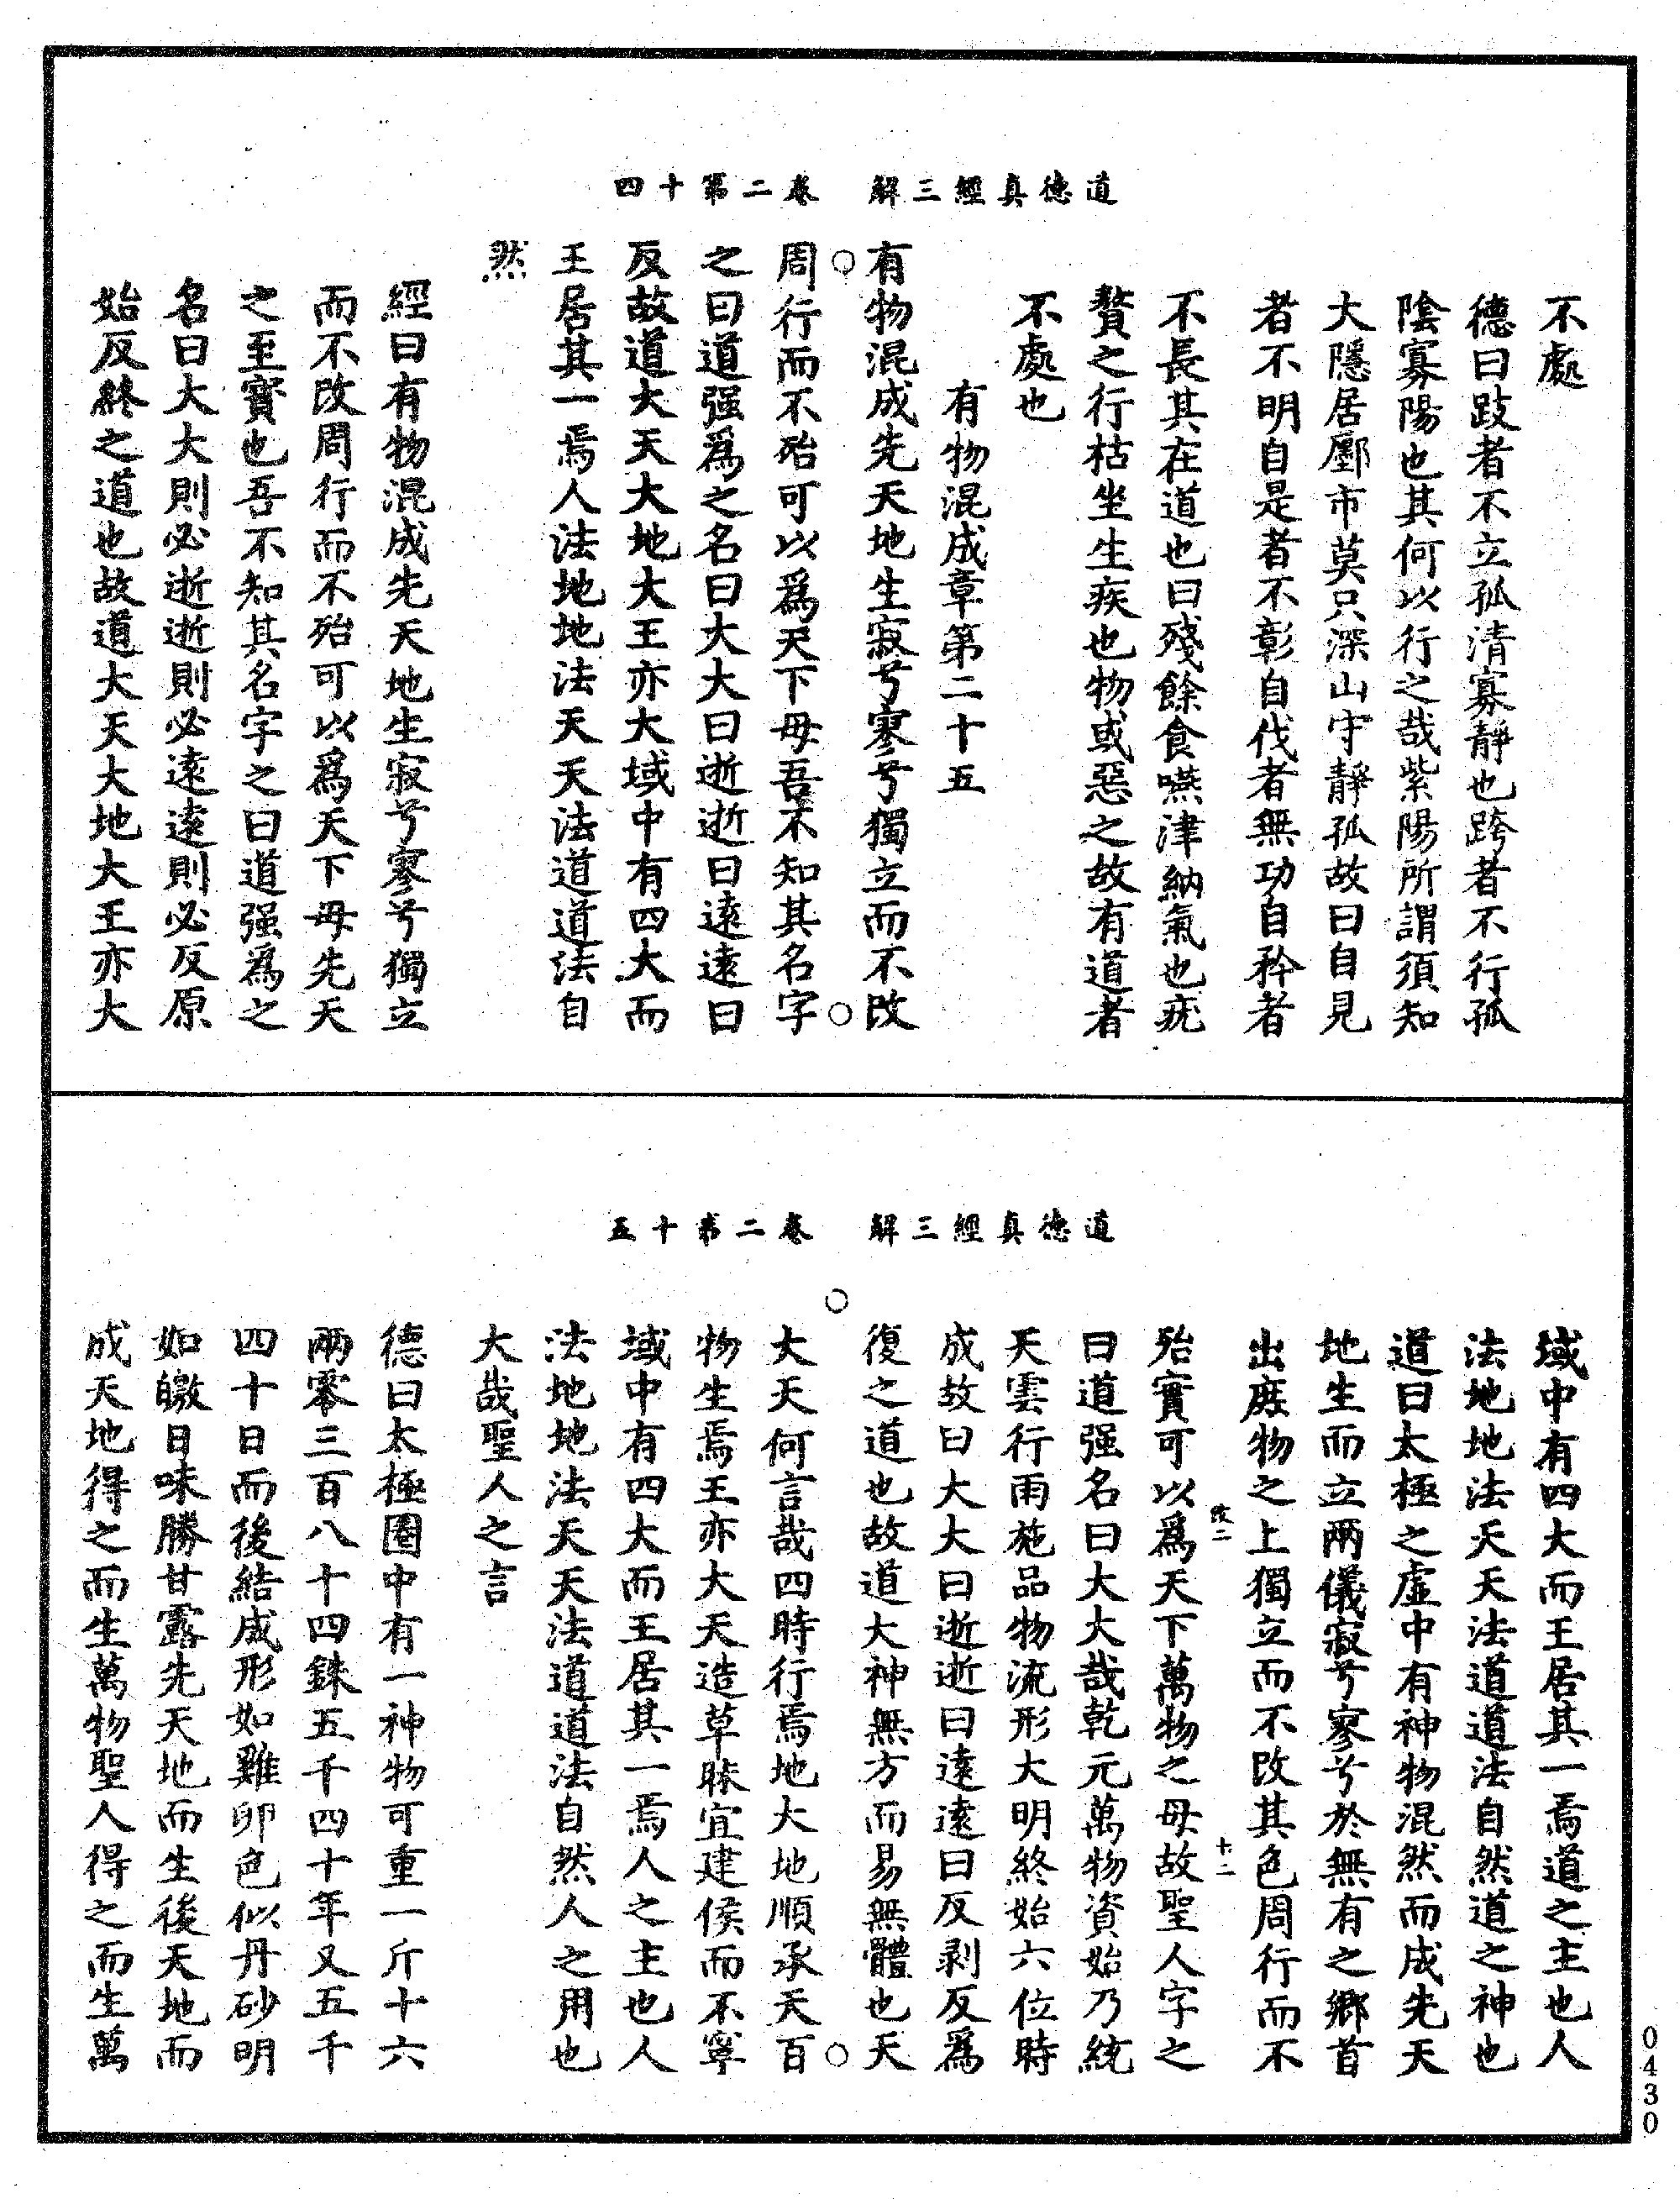 道德真經三解　卷二第十四
不處
德曰跂者不立孤清寡靜也跨者不行孤
陰寡陽也其何以行之哉紫陽所謂須知
大隱居鄽市莫只深山守靜孤故曰自見
者不明自是者不彰自伐者無功自矜者
不長其在道也曰殘餘食嚥津納氣也疣
贅之行枯坐生疾也物或惡之故有道者
不處也
有物混成章第二十五
有物混成先天地生寂兮寥兮獨立而不改
周行而不殆可以爲天下母吾不知其名字
之曰道强爲之名曰大大曰逝逝曰遠遠曰
反故道大天大地大王亦大域中有四大而
王居其一焉人法地地法天天法道道法自
然
經曰有物混成先天地生寂兮寥兮獨立
而不改周行而不殆可以爲天下母先天
之至寶也吾不知其名字之曰道强爲之
名曰大大則必逝逝則必遠遠則必反原
始反終之道也故道大天大地大王亦大
道德真經三解　卷二第十五
域中有四大而王居其一焉道之主也人
法地地法天天法道道法自然道之神也
道曰太極之虛中有神物混然而成先天
地生而立兩儀寂兮寥兮於無有之鄉首
出庶物之上獨立而不改其色周行而不
改二　十二
殆實可以爲天下萬物之母故聖人字之
曰道强名曰大大哉乾元萬物資始乃統
天雲行雨施品物流形大明終始六位時
成故曰大大曰逝逝曰遠遠曰反剥反爲
復之道也故道大神無方而易無體也天
大天何言哉四時行焉地大地順承天百
物生焉王亦大天造草昧宜建侯而不寧
域中有四大而王居其一焉人之主也人
法地地法天天法道道法自然人之用也
大哉聖人之言
德曰太極圈中有一神物可重一斤十六
兩零三百八十四銖五千四十年又五千
四十日而後結成形如雞卵色似丹砂明
如皦日味勝甘露先天地而生後天地而
成天地得之而生萬物聖人得之而生萬
0430